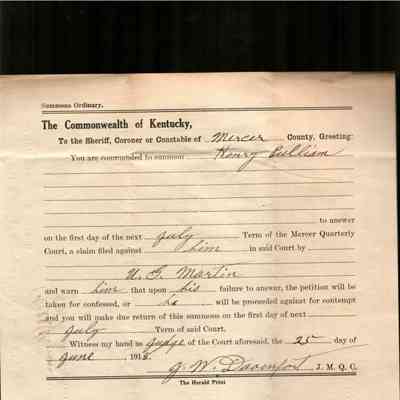 Summons Ordinary.
The Commonwealth of Kentucky,
To the Sheriff, Coroner or Constable of Mercer County, Greeting:
You are commanded to summon Henry Pulliam
to answer
on the first day of the next July Term of the Mercer Quarterly
Court, a claim filed against him in said Court by
U. G. Martin
and warn him that upon his failure to answer, the petition will be
taken for confessed, or he will be proceeded against for contempt
and you will make due return of this summons on the first day of next
July Term of said Court.
Witness my hand as Judge of the Court aforesaid, the 25 day of
June, 191
J. W. Davenport J. M. Q. C.
The Herald Print